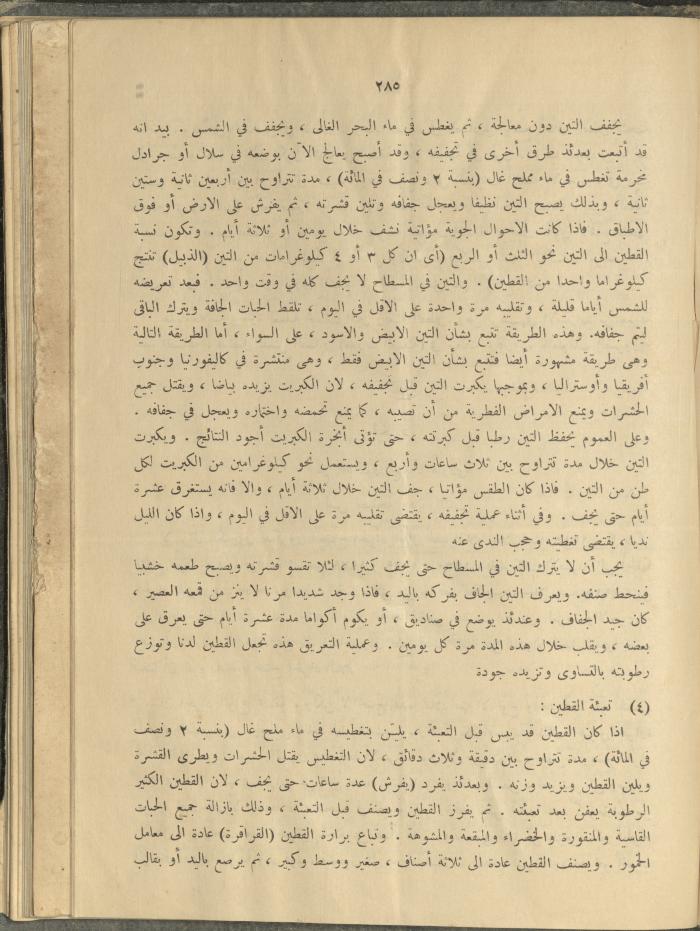 ٢٨٥
يجفف التين دون معالجة ، ثم يغطس في ماء البحر الغالى ، ويجفف في الشمس . بيد انه
قد أتبعت بعدئذ طرق أخرى في تجفيفه ، وقد أصبح يعالج الآن بوضعه في سلال أو جرادل
مخرمة تغطس في ماء مملح غال (بنسبة ٢ ونصف في المائة) ، مدة تتراوح بين أربعين ثانية وستين
ثانية ، وبذلك يصبح التين نظيفا ويعجل جفافه وتلين قشرته ، ثم يفرش على الارض أو فوق
الاطباق . فاذا كانت الاحوال الجوية مؤاتية نشف خلال يومين أو ثلاثة أيام . وتكون نسبة
القطين الى التين نحو الثلث أو الربع (أى ان كل ٣ أو ٤ كيلوغرامات من التين (الذبيل) تنتج
كيلوغراما واحدا من القطين) . والتين في المسطاح لا يجف كله في وقت واحد . فبعد تعريضه
للشمس أياما قليلة ، وتقليبه مرة واحدة على الاقل في اليوم ، تلقط الحبات الجافة ويترك الباقى
ليتم جفافه. وهذه الطريقة تتبع بشأن التين الابيض والاسود ، على السواء ، أما الطريقة التالية
وهى طريقة مشهورة أيضا فتتبع بشأن التين الابيض فقط ، وهى منتشرة في كاليفورنيا وجنوب
أفريقيا وأوستراليا ، وبموجبها يكبرت التين قبل تجفيفه ، لان الكبريت يزيده بياضا ، ويقتل جميع
الحشرات ويمنع الامراض الفطرية من أن تصيبه ، كما يمنع تحمضه واختماره ويعجل في جفافه .
وعلى العموم يحفظ التين رطبا قبل كبرتته ، حتى تؤتى أبخرة الكبريت أجود النتائج . ويكبرت
التين خلال مدة تتراوح بين ثلاث ساعات وأربع ، ويستعمل نحو كيلوغرامين من الكبريت لكل
طن من التين . فاذا كان الطقس مؤاتيا ، جف التين خلال ثلاثة أيام ، والا فانه يستغرق عشرة
أيام حتى يجف . وفي أثناء عملية تجفيفه ، يقتضى تقليبه مرة على الاقل في اليوم ، واذا كان الليل
نديا ، يقتضى تغطيته وحجب الندى عنه
يجب أن لا يترك التين في المسطاح حتى يجف كثيرا ، لئلا تقسو قشرته ويصبح طعمه خشبيا
فينحط صنفه. ويعرف التين الجاف بفركه باليد ، فاذا وجد شديدا مرنا لا ينز من قمعه العصير ،
كان جيد الجفاف . وعندئذ يوضع في صناديق ، أو يكوم أكواما مدة عشرة أيام حتى يعرق على
بعضه ، ويقلب خلال هذه المدة مرة كل يومين . وعملية التعريق هذه تجعل القطين لدنا وتوزع
رطوبته بالتساوى وتزيده جودة
(٤) تعبئة القطين :
اذا كان القطين قد يبس قبل التعبئة ، يليّن بتغطيسه في ماء ملح غال (بنسبة ٢ ونصف
في المائة) ، مدة تتراوح بين دقيقة وثلاث دقائق ، لان التغطيس يقتل الحشرات ويطرى القشرة
ويلين القطين ويزيد وزنه . وبعدئذ يفرد (يفرش) عدة ساعات حتى يجف ، لان القطين الكثير
الرطوبة يعفن بعد تعبئته . ثم يفرز القطين ويصنف قبل التعبئة ، وذلك بازالة جميع الحبات
القاسية والمنقورة والخضراء والمبقعة والمشوهة . وتباع برارة القطين (القراقرة) عادة الى معامل
الخمور . ويصنف القطين عادة الى ثلاثة أصناف ، صغير ووسط وكبير ، ثم يرصع باليد أو بقالب